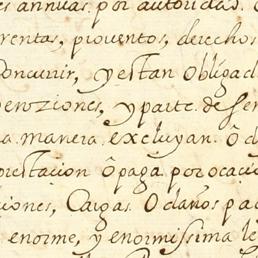 es annuas por autoridad.
rentas, proventos, derechos
concurrir, y estan obligad
venziones, y parte de ser
a manera excluyan. O d
prestacion ô paga por ocacio
iones, Cargas. O daños pa
enorme, y enormissima le